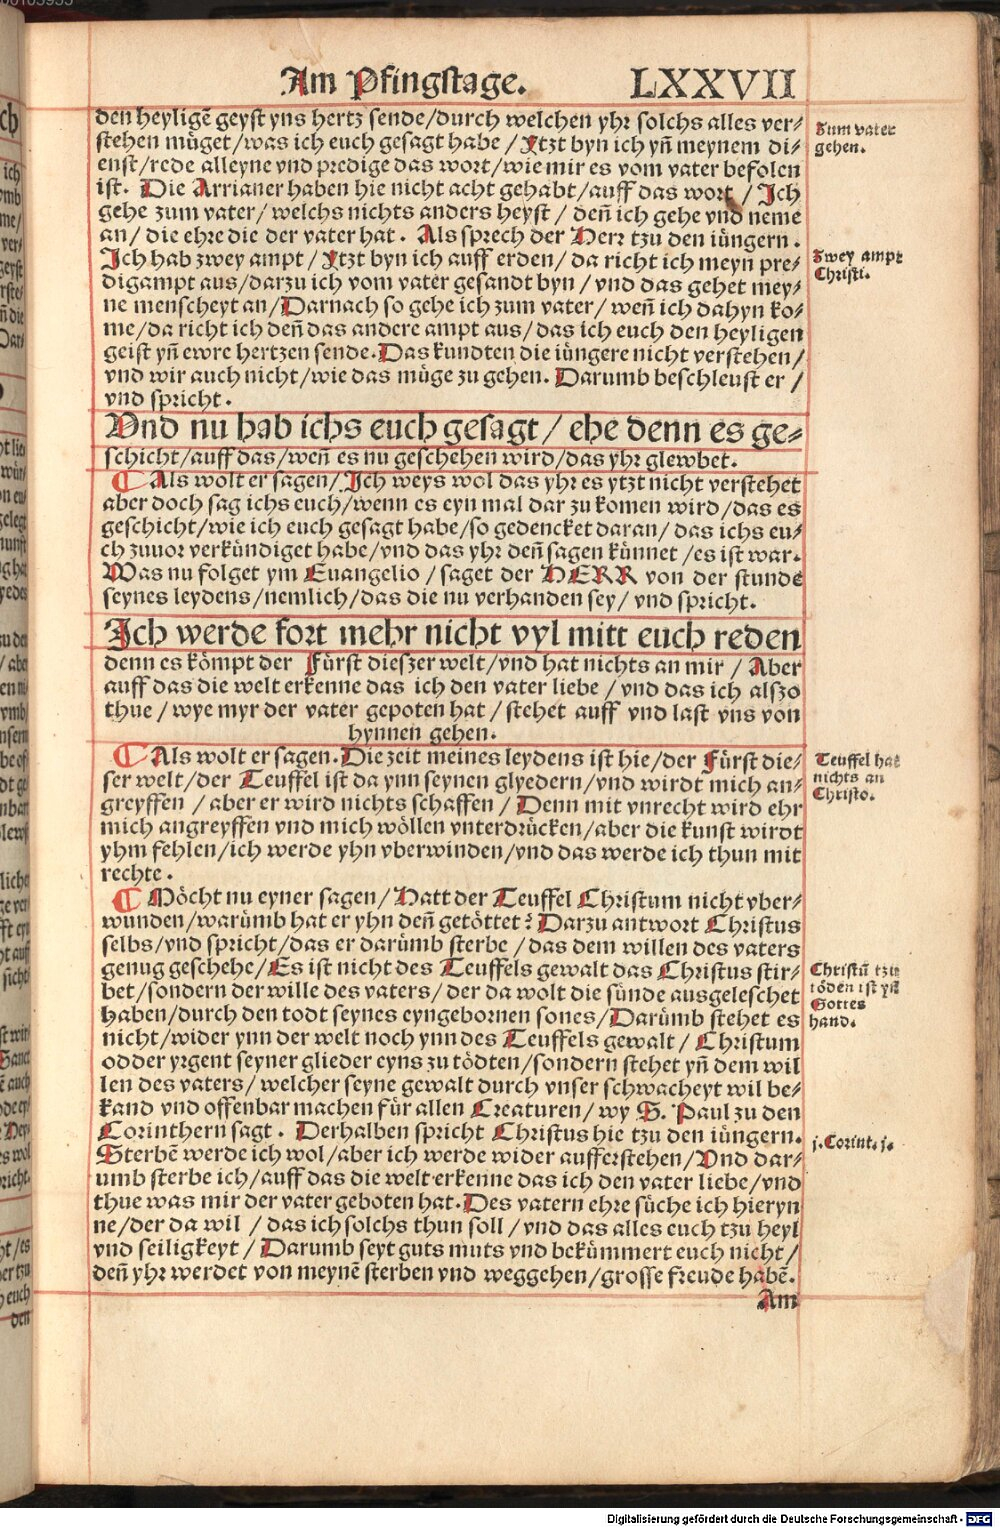 Am Pfingstage. LXXVII
den heyligẽ geyst yns hertz sende/durch welchen yhr solchs alles ver⸗
stehen müget/was ich euch gesagt habe/Ytzt byn ich yñ meynem di⸗
enst/rede alleyne vnd predige das wort/wie mir es vom vater befolen
ist. Die Arrianer haben hie nicht acht gehabt/auff das wort/Ich
gehe zum vater/welchs nichts anders heyst/deñ ich gehe vnd neme
an/die ehre die der vater hat. Als sprech der Herr tzu den iüngern.
Ich hab zwey ampt/Ytzt byn ich auff erden/da richt ich meyn pre⸗
digampt aus/darzu ich vom vater gesandt byn/vnd das gehet mey⸗
ne menscheyt an/Darnach so gehe ich zum vater/weñ ich dahyn ko⸗
me/da richt ich deñ das andere ampt aus/das ich euch den heyligen
geist yñ ewre hertzen sende. Das kundten die iüngere nicht verstehen/
vnd wir auch nicht/wie das müge zu gehen. Darumb beschleust er/
vnd spricht.
Vnd nu hab ichs euch gesagt/ehe denn es ge⸗
schicht/auff das/weñ es nu geschehen wird/das yhr glewbet.
Als wolt er sagen/Ich weys wol das yhr es ytzt nicht verstehet
aber doch sag ichs euch/wenn es eyn mal dar zu komen wird/das es
geschicht/wie ich euch gesagt habe/so gedencket daran/das ichs eu⸗
ch zuuor verkündiget habe/vnd das yhr deñ sagen künnet/es ist war.
Was nu folget ym Euangelio/saget der HERR von der stunde
seynes leydens/nemlich/das die nu verhanden sey/vnd spricht.
Ich werde fort mehr nicht vyl mitt euch reden
denn es kömpt der Fürst dieszer welt/vnd hat nichts an mir/Aber
auff das die welt erkenne das ich den vater liebe/vnd das ich alszo
thue/wye myr der vater gepoten hat/stehet auff vnd last vns von
hynnen gehen.
Als wolt er sagen. Die zeit meines leydens ist hie/der Fürst die⸗
ser welt/der Teuffel ist da ynn seynen glyedern/vnd wirdt mich an⸗
greyffen/aber er wird nichts schaffen/Denn mit vnrecht wird ehr
mich angreyffen vnd mich wöllen vnterdrücken/aber die kunst wirdt
yhm fehlen/ich werde yhn vberwinden/vnd das werde ich thun mit
rechte.
Möcht nu eyner sagen/Hatt der Teuffel Christum nicht vber⸗
wunden/warümb hat er yhn deñ getöttet? Darzu antwort Christus
selbs/vnd spricht/das er darümb sterbe/das dem willen des vaters
genug geschehe/Es ist nicht des Teuffels gewalt das Christus stir⸗
bet/sondern der wille des vaters/der da wolt die sünde ausgeleschet
haben/durch den todt seynes eyngebornen sones/Darümb stehet es
nicht/wider ynn der welt noch ynn des Teuffels gewalt/Christum
odder yrgent seyner glieder eyns zu tödten/sondern stehet yñ dem wil
len des vaters/welcher seyne gewalt durch vnser schwacheyt wil be⸗
kand vnd offenbar machen für allen Creaturen/wy S. Paul zu den
Corinthern sagt. Derhalben spricht Christus hie tzu den iüngern.
Sterbẽ werde ich wol/aber ich werde wider aufferstehen/Vnd dar⸗
umb sterbe ich/auff das die welt erkenne das ich den vater liebe/vnd
thue was mir der vater geboten hat. Des vatern ehre süche ich hieryn
ne/der da wil/das ich solchs thun soll/vnd das alles euch tzu heyl
vnd seiligkeyt/Darumb seyt guts muts vnd bekümmert euch nicht/
deñ yhr werdet von meynẽ sterben vnd weggehen/grosse freude habẽ.
Am
Zum vater
gehen.
Zwey ampt
Christi.
Teuffel hat
nichts an
Christo.
Christũ tzu
töden ist yñ
Gottes
hand.
j. Corint. j.
Digitalisierung gefördert durch die Deutsche Forschungsgemeinschaft - DFG